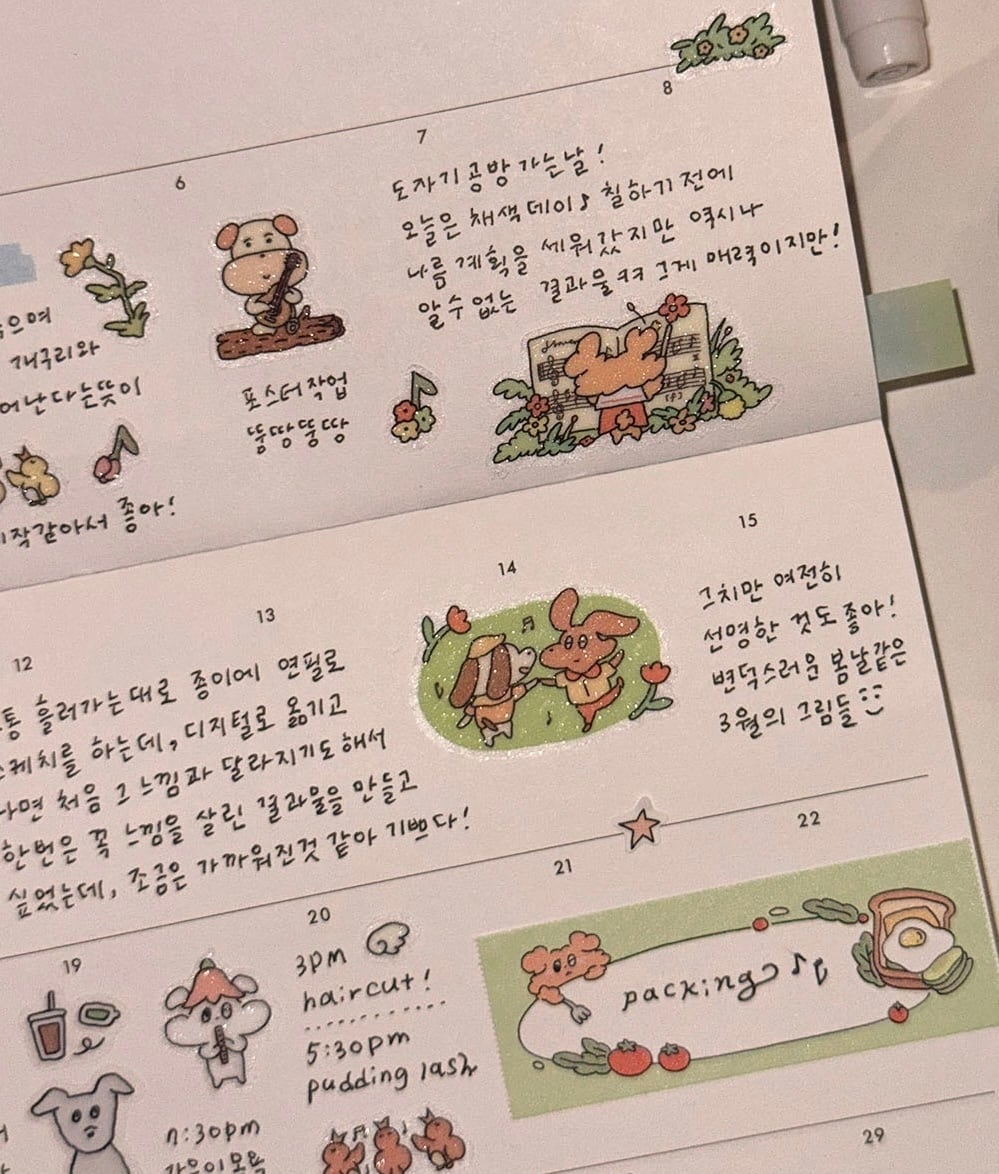 8
7
6
도자기 공방 가는날!
오늘은 채색 데이♪ 칠하기 전에
나름 계획을 세워갔지만 역시나
알 수 없는 결과물ㅋㅋ 그게 매력이지만!
으며
개구리와
어난다는뜻이
작같아서 좋아!
포스터 작업
뚱땅뚱땅
15
14
13
12
통 흘러가는대로 종이에 연필로
케치를 하는데, 디지털로 옮기고
나면 처음 그 느낌과 달라지기도해서
한번은 꼭 느낌을 살린 결과물을 만들고
싶었는데, 조금은 가까워진것 같아 기쁘다!
그치만 여전히
선명한 것도 좋아!
변덕스러운 봄날같은
3월의 그림들
22
21
20
19
3pm
haircut!
5:30pm
pudding lash
7:30pm
packing
29